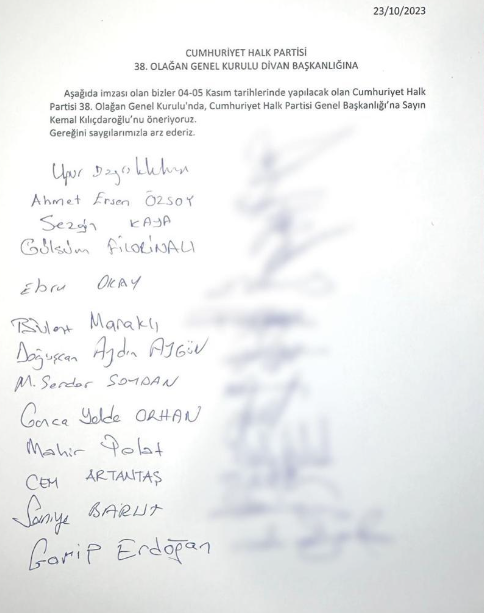 23/10/2023
CUMHURİYET HALK PARTİSİ
38. OLAĞAN GENEL KURULU DİVAN BAŞKANLIĞINA
Aşağıda imzası olan bizler 04-05 Kasım tarihlerinde yapılacak olan Cumhuriyet Halk
Partisi 38. Olağan Genel Kurulu'nda, Cumhuriyet Halk Partisi Genel Başkanlığı'na Sayın
Kemal Kılıçdaroğlu'nu öneriyoruz.
Gereğini saygılarımızla arz ederiz.
Uğur
Ahmet Ersen ÖZSOY
Sezgin KAYA
Gülsüm FİLORİNALI
Ebru OKAY
Bülent Maraklı
Doğuşcan Aydın AYGÜN
M. Serdar SOYDAN
Gonca Yelda ORHAN
Mahir Polat
CEM ARTANTAŞ
Saniye BARUT
Garip Erdoğan